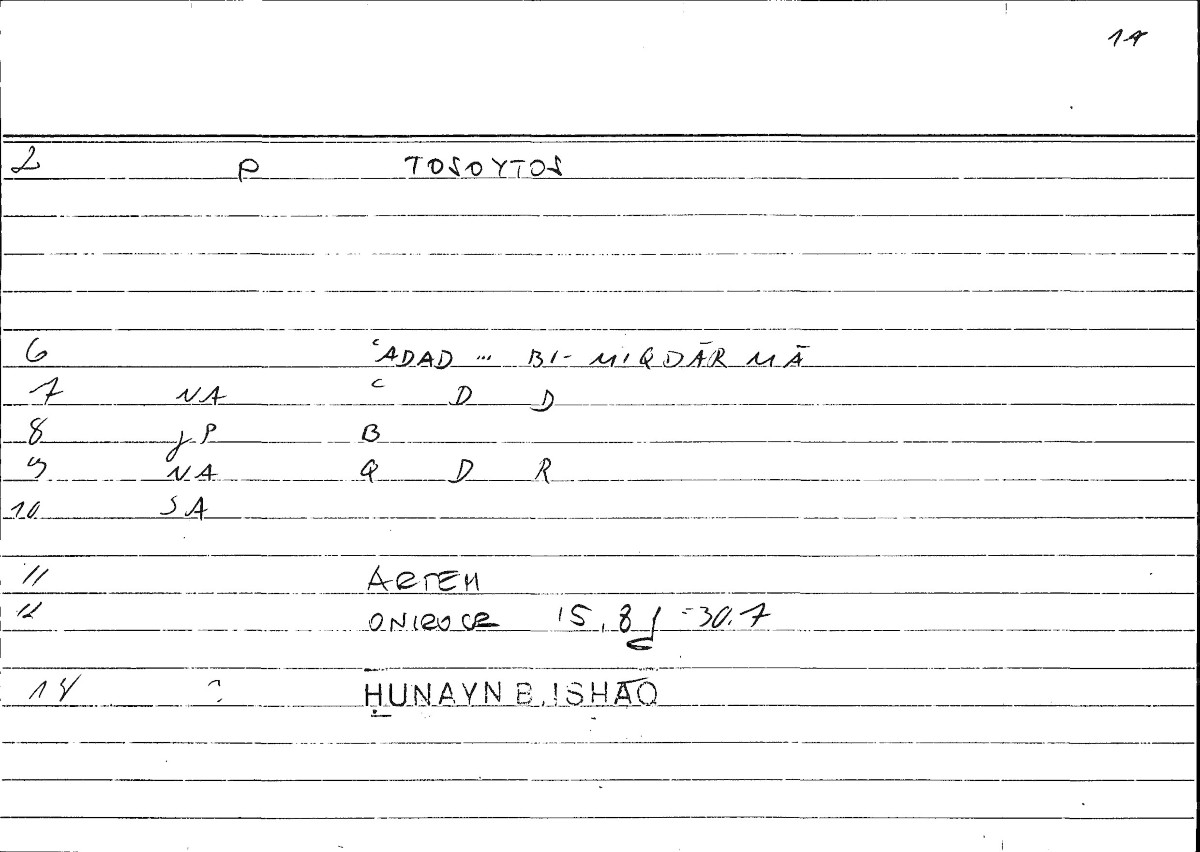 14
2 P TOSOYTOS
6 ʿADAD ... BI- MIQDĀR MĀ
7 NA ʿ D D
8 γP B
9 NA Q D R
10 SA
11 ARTEM
12 ONIROCR 15,8 =30.7
14 ḤUNAYN B. ISHĀQ